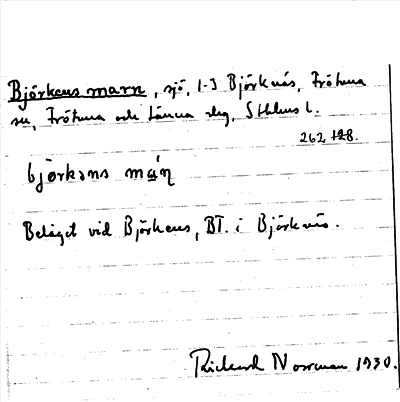 Björkens marn, sjö, 1-3 Björknäs, Frötuna
sn, Frötuna och Länna slg, Sthlms l.
262 128.
björkans mán
Beläget vid Björkens, BT. i Björknäs.
Rickard Norrman 1930.